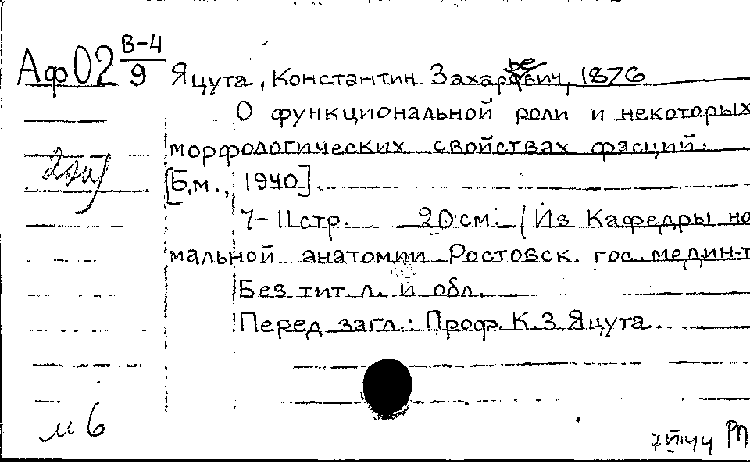 Аф02 В-4/9
Яцута, Константин Захарьевич, 1876
О функциональной роли и некоторых
морфологических свойствах фасций.
[Б.м., 1940].
7-11 стр. 20 см. (Из Кафедры но
мальной анатомии Ростовск. гос. медин-т
Без тит. л. и обл.
Перед загл.: Проф. К.З. Яцута.
м 6